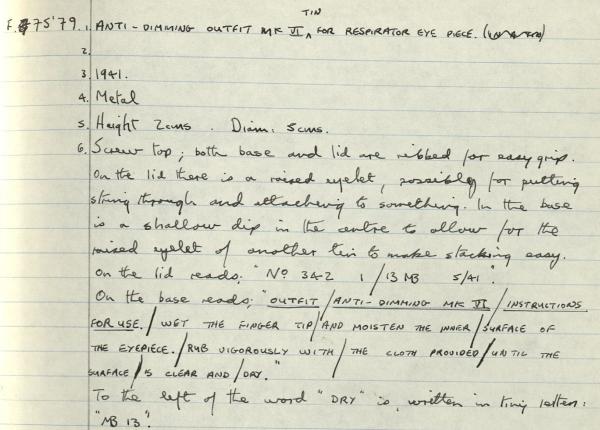 TIN
F.75'79. 1. ANTI-DIMMING OUTFIT MK VI ^ FOR RESPIRATOR EYE PIECE.
2.
3. 1941.
4. Metal
5. Height 2cms. Diam. 5cms.
6. Screw top; both base and lid are ribbed for easy grip.
On the lid there is a raised eyelet, possibly for putting
string through and attaching to something. In the base
is a shallow dip in the centre to allow for the
raised eyelet of another tin to make stacking easy.
On the lid reads; "No 342 1/13 MB 5/41".
On the base reads; "OUTFIT/ANTI-DIMMING MK VI/INSTRUCTIONS
FOR USE./WET THE FINGER TIP/AND MOISTEN THE INNER/SURFACE OF
THE EYEPIECE./RUB VIGOROUSLY WITH/THE CLOTH PROVIDED/UNTIL THE
SURFACE/IS CLEAR AND/DRY."
To the left of the word "DRY" is, written in tiny letters:
"MB 13".